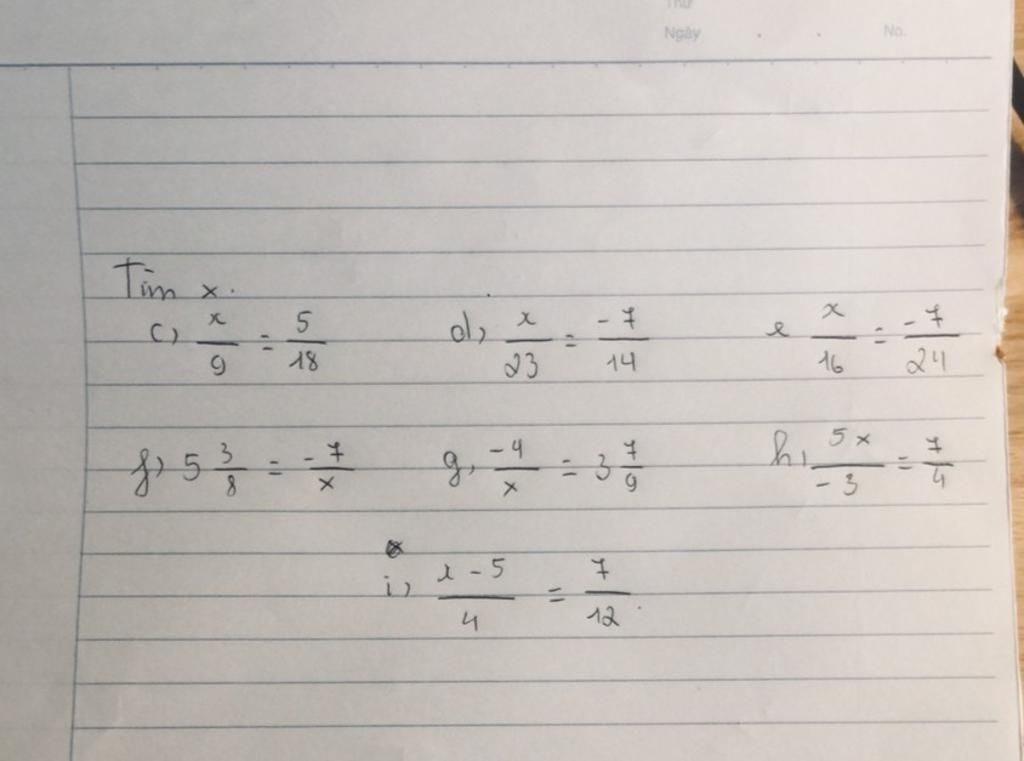 Thứ
Ngày . . No.
Tìm x.
c, x/9 = 5/18 d, x/23 = -7/14 e x/16 = -7/24
f) 5 3/8 = -7/x g, -4/x = 3 7/9 h, 5x/-3 = 7/4
i, x-5/4 = 7/12.